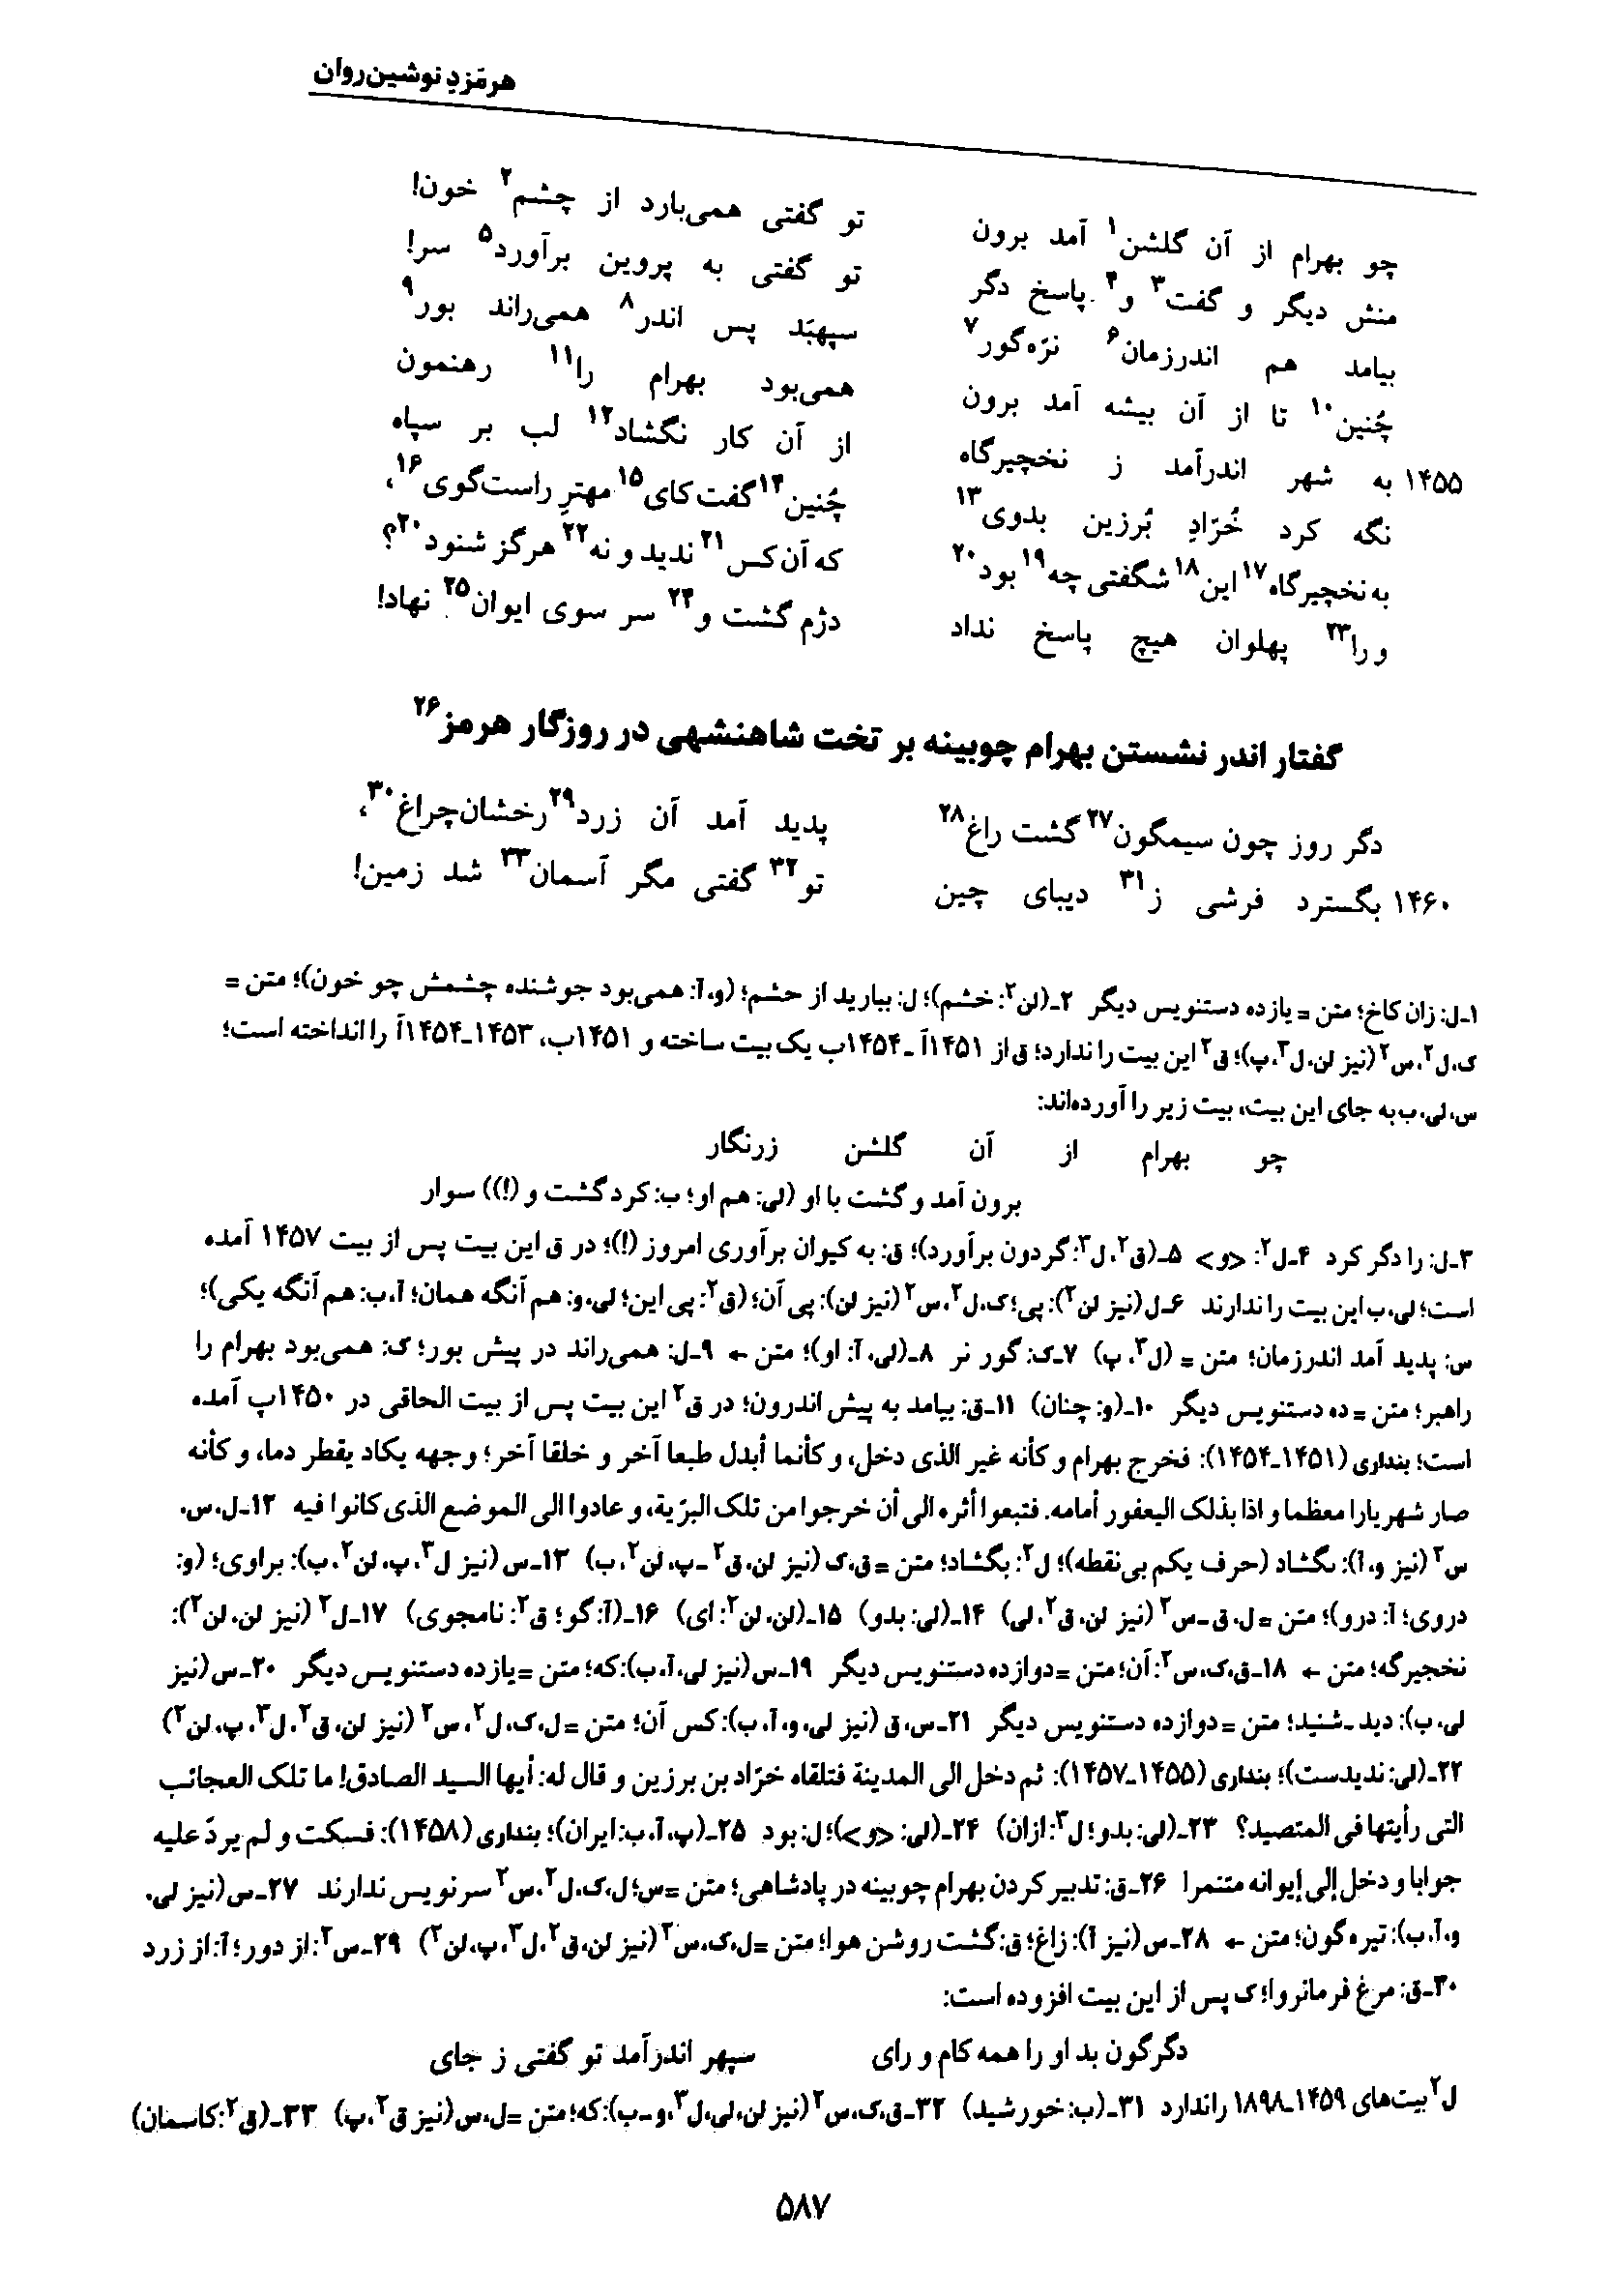 هرمَزدِ نوشین‌روان
چو بهرام از آن گلشن۱ آمد برون تو گفتی همی‌بارد از چشم۲ خون!
منش دیگر و گفت۳ و۴ پاسخ دگر تو گفتی به پروین برآورد۵ سر!
بیامد هم اندرزمان۶ نرّه‌گور۷ سپهبَد پس اندر۸ همی‌راند بور۹
چُنین۱۰ تا از آن بیشه آمد برون همی‌بود بهرام را۱۱ رهنمون
۱۴۵۵ به شهر اندرآمد ز نخچیرگاه از آن کار نگشاد۱۲ لب بر سپاه
نگه کرد خُرّادِ بُرزین بدوی۱۳ چُنین۱۴ گفت کای۱۵ مهترِ راست‌گوی۱۶،
به نخچیرگاه۱۷ این۱۸ شگفتی چه۱۹ بود۲۰ که آن کس۲۱ ندید و نه۲۲ هرگز شنود۲۰م؟
ورا۲۳ پهلوان هیچ پاسخ نداد دژم گشت و۲۴ سر سوی ایوان۲۵ نهاد!
گفتار اندر نشستن بهرام چوبینه بر تخت شاهنشهی در روزگار هرمز۲۶
دگر روز چون سیمگون۲۷ گشت راغ۲۸ پدید آمد آن زرد۲۹ رخشان‌چراغ۳۰،
۱۴۶۰ بگسترد فرشی ز۳۱ دیبای چین تو۳۲ گفتی مگر آسمان۳۳ شد زمین!
۱ـ ل: زان کاخ؛ متن = یازده دستنویس دیگر ۲ـ (لن۲: خشم)؛ ل: ببارید از حشم؛ (و، آ: همی‌بود جوشنده چشمش چو خون)؛ متن =
ک، ل۲، س۲ (نیز لن، ل۳، پ)؛ ق۲ این بیت را ندارد؛ ق از ۱۴۵۱آ ـ ۱۴۵۴ب یک بیت ساخته و ۱۴۵۱ب، ۱۴۵۳ـ۱۴۵۴آ را انداخته است؛
س، لی، ب به جای این بیت، بیت زیر را آورده‌اند:
چو بهرام از آن گلشن زرنگار
برون آمد و گشت با او (لی: هم او؛ ب: کرد گشت و (!)) سوار
۳ـ ل: را دگر کرد ۴ـ ل۲: <و> ۵ـ (ق۲، ل۳: گردون برآورد)؛ ق: به کیوان برآوری امروز (!)؛ در ق این بیت پس از بیت ۱۴۵۷ آمده
است؛ لی، ب این بیت را ندارند ۶ـ ل (نیز لن۲): پی؛ ک، ل۲، س۲ (نیز لن): پی آن؛ (ق۲: پی این؛ لی، و: هم آنگه همان؛ آ، ب: هم آنگه یکی)؛
س: پدید آمد اندرزمان؛ متن = (ل۳، پ) ۷ـ ک: گور نر ۸ـ (لی، آ: او)؛ متن ← ۹ـ ل: همی‌راند در پیش بور؛ ک: همی‌بود بهرام را
راهبر؛ متن = ده دستنویس دیگر ۱۰ـ (و: چنان) ۱۱ـ ق: بیامد به پیش اندرون؛ در ق۲ این بیت پس از بیت الحاقی در ۱۴۵۰پ آمده
است؛ بنداری (۱۴۵۱ـ۱۴۵۴): فخرج بهرام و کأنه غیر الذی دخل، و کأنما أبدل طبعا آخر و خلقا آخر؛ وجهه یکاد یقطر دما، و کأنه
صار شهریارا معظما و اذا بذلک الیعفور أمامه. فتبعوا أثره الی أن خرجوا من تلک البرّیة، و عادوا الی الموضع الذی کانوا فیه ۱۲ـ ل، س،
س۲ (نیز و، آ): نکشاد (حرف یکم بی‌نقطه)؛ ل۲: بگشاد؛ متن = ق، ک (نیز لن، ق۲ ـ پ، لن۲، ب) ۱۳ـ س (نیز ل۳، پ، لن۲، ب): براوی؛ (و:
دروی؛ آ: درو)؛ متن = ل، ق ـ س۲ (نیز لن، ق۲، لی) ۱۴ـ (لی: بدو) ۱۵ـ (لن، لن۲: ای) ۱۶ـ (آ: گو؛ ق۲: نامجوی) ۱۷ـ ل۲ (نیز لن، لن۲):
نخجیرگه؛ متن ← ۱۸ـ ق، ک، س۲: آن؛ متن = دوازده دستنویس دیگر ۱۹ـ س (نیز لی، آ، ب): که؛ متن = یازده دستنویس دیگر ۲۰ـ س (نیز
لی، ب): دید ـ شنید؛ متن = دوازده دستنویس دیگر ۲۱ـ س، ق (نیز لی، و، آ، ب): کس آن؛ متن = ل، ک، ل۲، س۲ (نیز لن، ق۲، ل۳، پ، لن۲)
۲۲ـ (لی: ندیدست)؛ بنداری (۱۴۵۵ـ۱۴۵۷): ثم دخل الی المدینة فتلقاه خرّاد بن برزین و قال له: أیها السید الصادق! ما تلک العجائب
التی رأیتها فی المتصید؟ ۲۳ـ (لی: بدو؛ ل۳: ازان) ۲۴ـ (لی: <و>)؛ ل: بود ۲۵ـ (پ، آ، ب: ایران)؛ بنداری (۱۴۵۸): فسکت و لم یردّ علیه
جوابا و دخل إلی إیوانه متنمرا ۲۶ـ ق: تدبیر کردن بهرام چوبینه در پادشاهی؛ متن = س؛ ل، ک، ل۲، س۲ سرنویس ندارند ۲۷ـ س (نیز لی،
و، آ، ب): تیره گون؛ متن ← ۲۸ـ س (نیز آ): زاغ؛ ق: گشت روشن هوا؛ متن = ل، ک، س۲ (نیز لن، ق۲، ل۳، پ، لن۲) ۲۹ـ س۲: از دور؛ آ: از زرد
۳۰ـ ق: مرغ فرمانروا؛ ک پس از این بیت افزوده است:
دگرگون بد او را همه کام و رای سپهر اندرآمد تو گفتی ز جای
ل۲ بیت‌های ۱۴۵۹ـ۱۸۹۸ را ندارد ۳۱ـ (ب: خورشید) ۳۲ـ ق، ک، س۲ (نیز لن، لی، ل۳، و ـ ب): که؛ متن = ل، س (نیز ق۲، پ) ۳۳ـ (ق۲: کاسمان)
۵۸۷